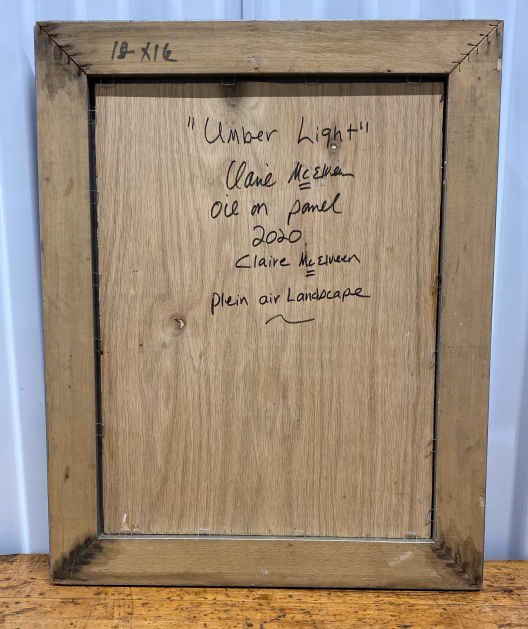 12 x 16
"Umber Light"
Claire McElveen
oil on panel
2020
Claire McElveen
plein air Landscape